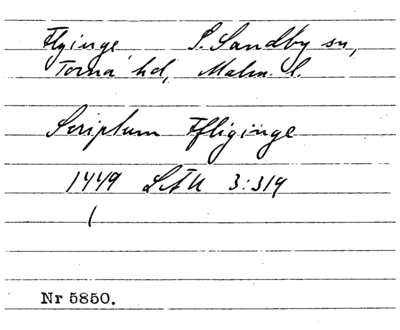 Flyinge S. Sandby sn,
Torna hd, Malm. l.
Scriptum Ffliginge
1449 LÄU 3:319
Nr 5850.